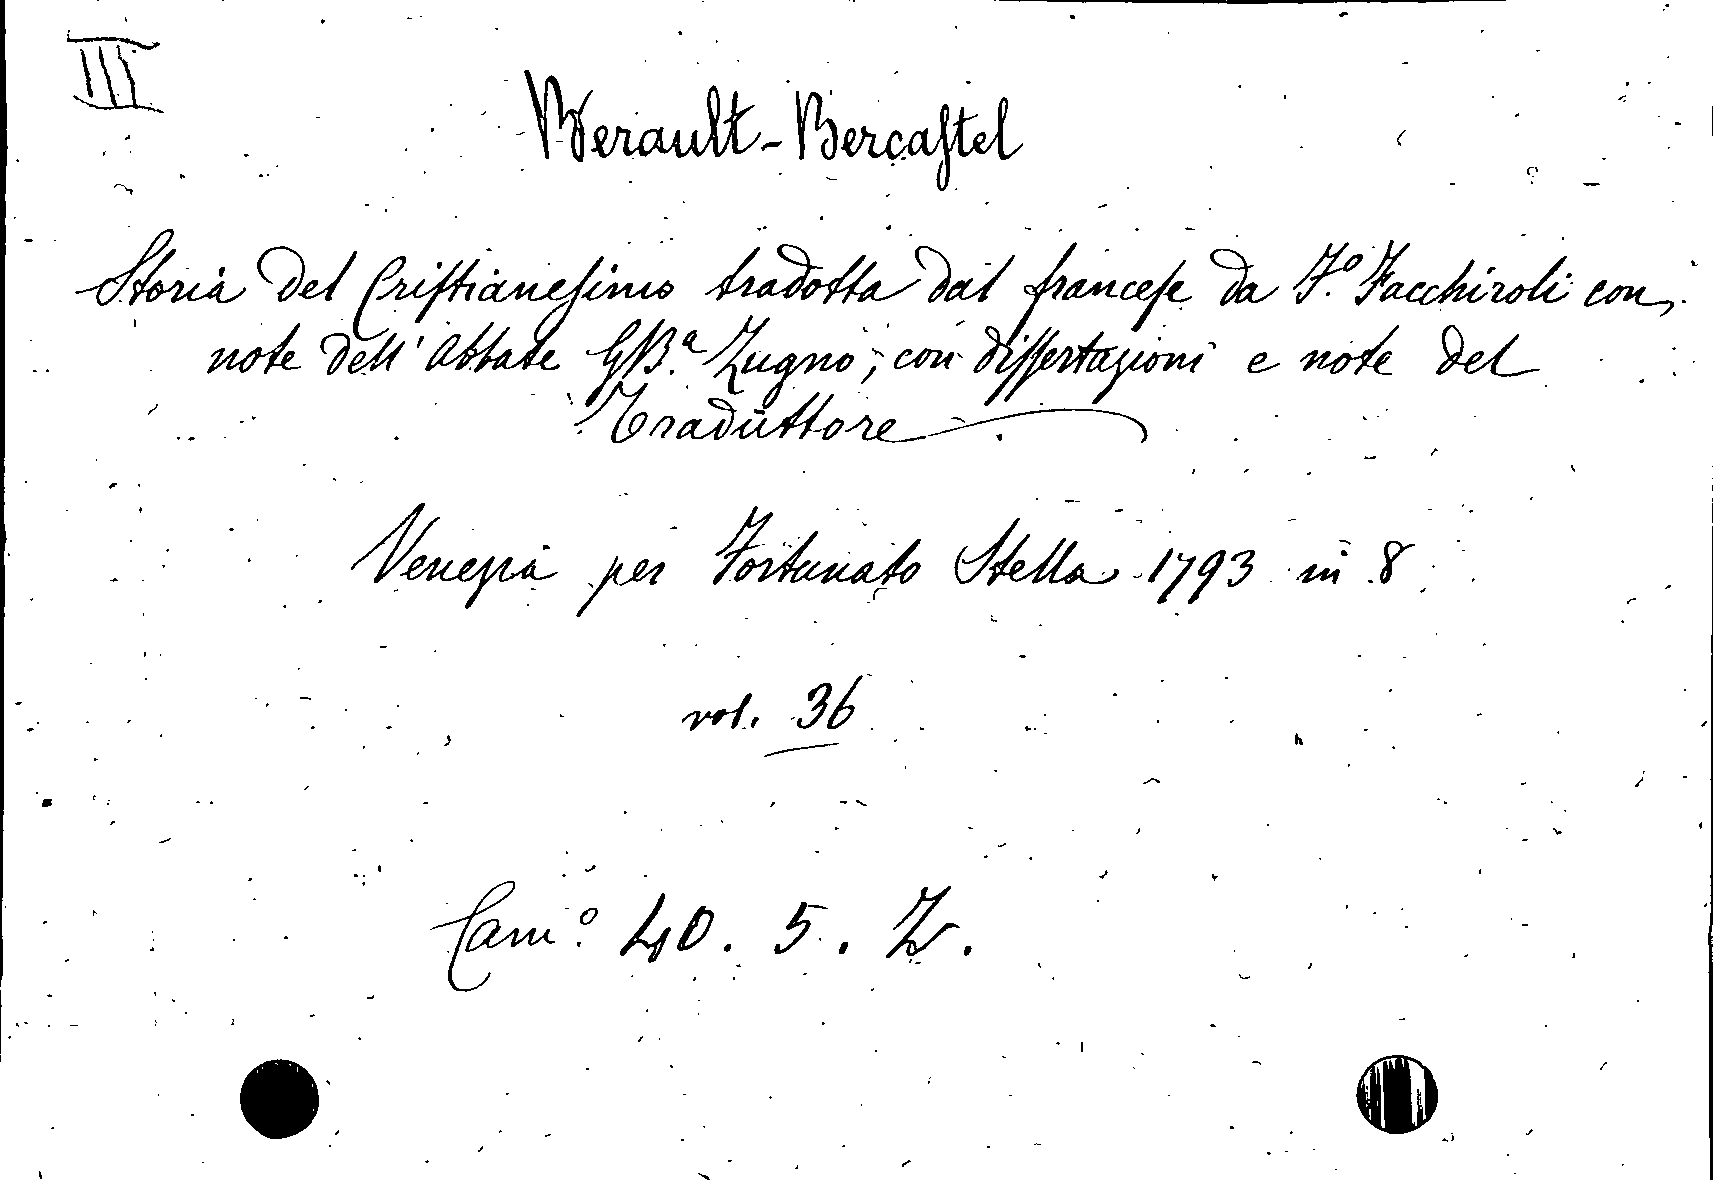 III
Berault-Bercastel
Storia del Cristianesimo tradotta dal francese da F.º Facchiroli con
note dell'Abbate GB.ª Zugno, con dissertazioni e note del
Traduttore
Venezia per Fortunato Stella 1793 in 8
vol. 36
Cam.º 40. 5. Z.